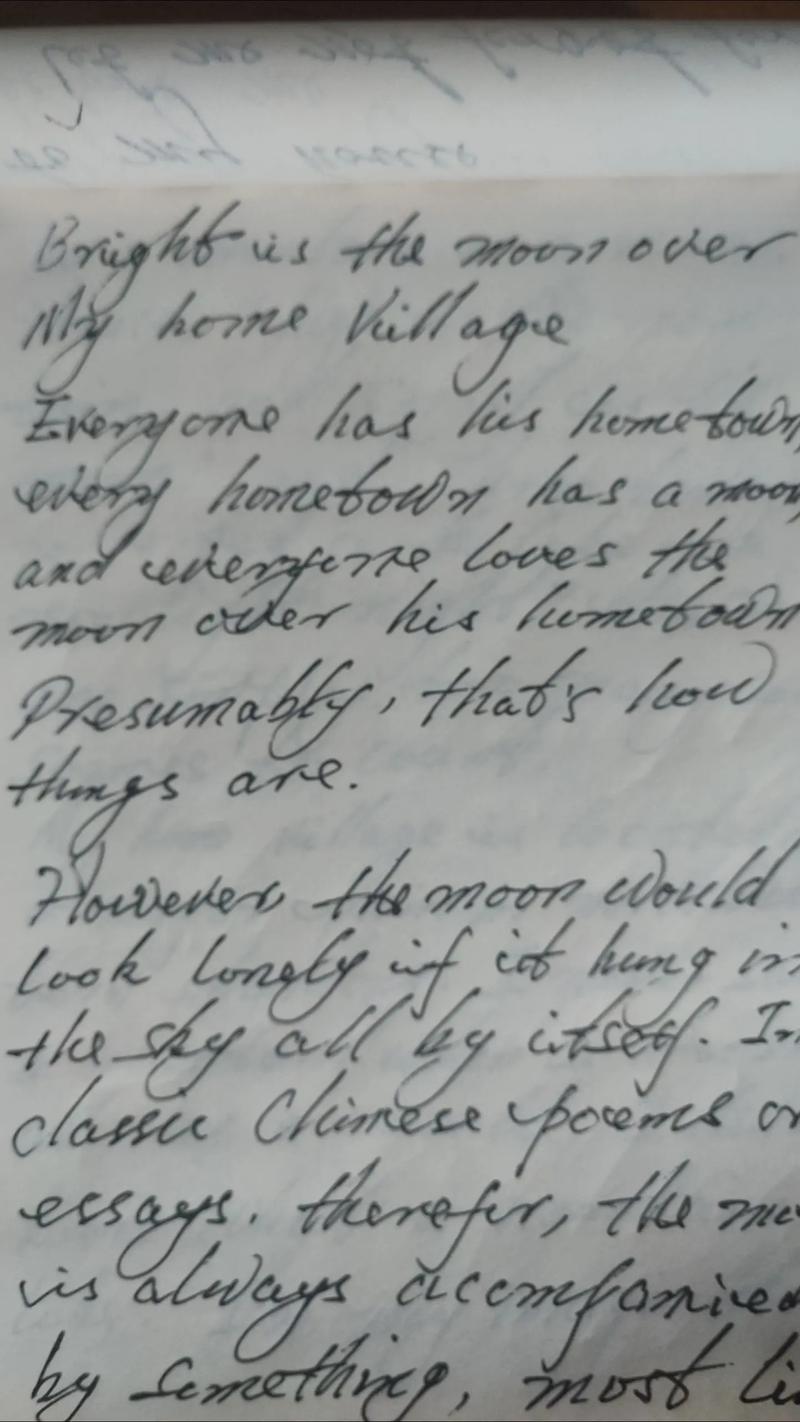 Bright is the moon over
My home Village
Everyone has his hometown,
every hometown has a moon,
and everyone loves the
moon over his hometown
Presumably, that's how
things are.
However, the moon would
look lonely if it hung in
the sky all by itself. In
classic Chinese poems or
essays. therefor, the mo
is always accompanied
by something, most li